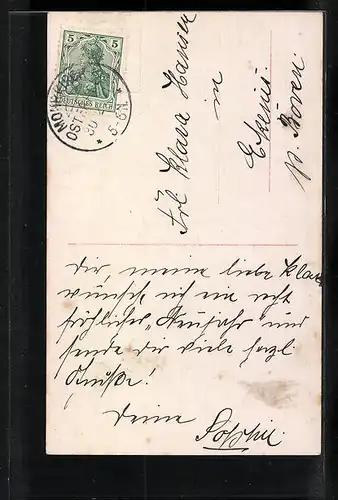 5 5
DEUTSCHES REICH
5-6N
Frl Klara Hansen
in
p. Böven
Dir, meine liebe Klara
wünsche ich ein recht
fröhliches „Neujahr" und
sende dir viele herzl
Grüße!
Deine Sophie